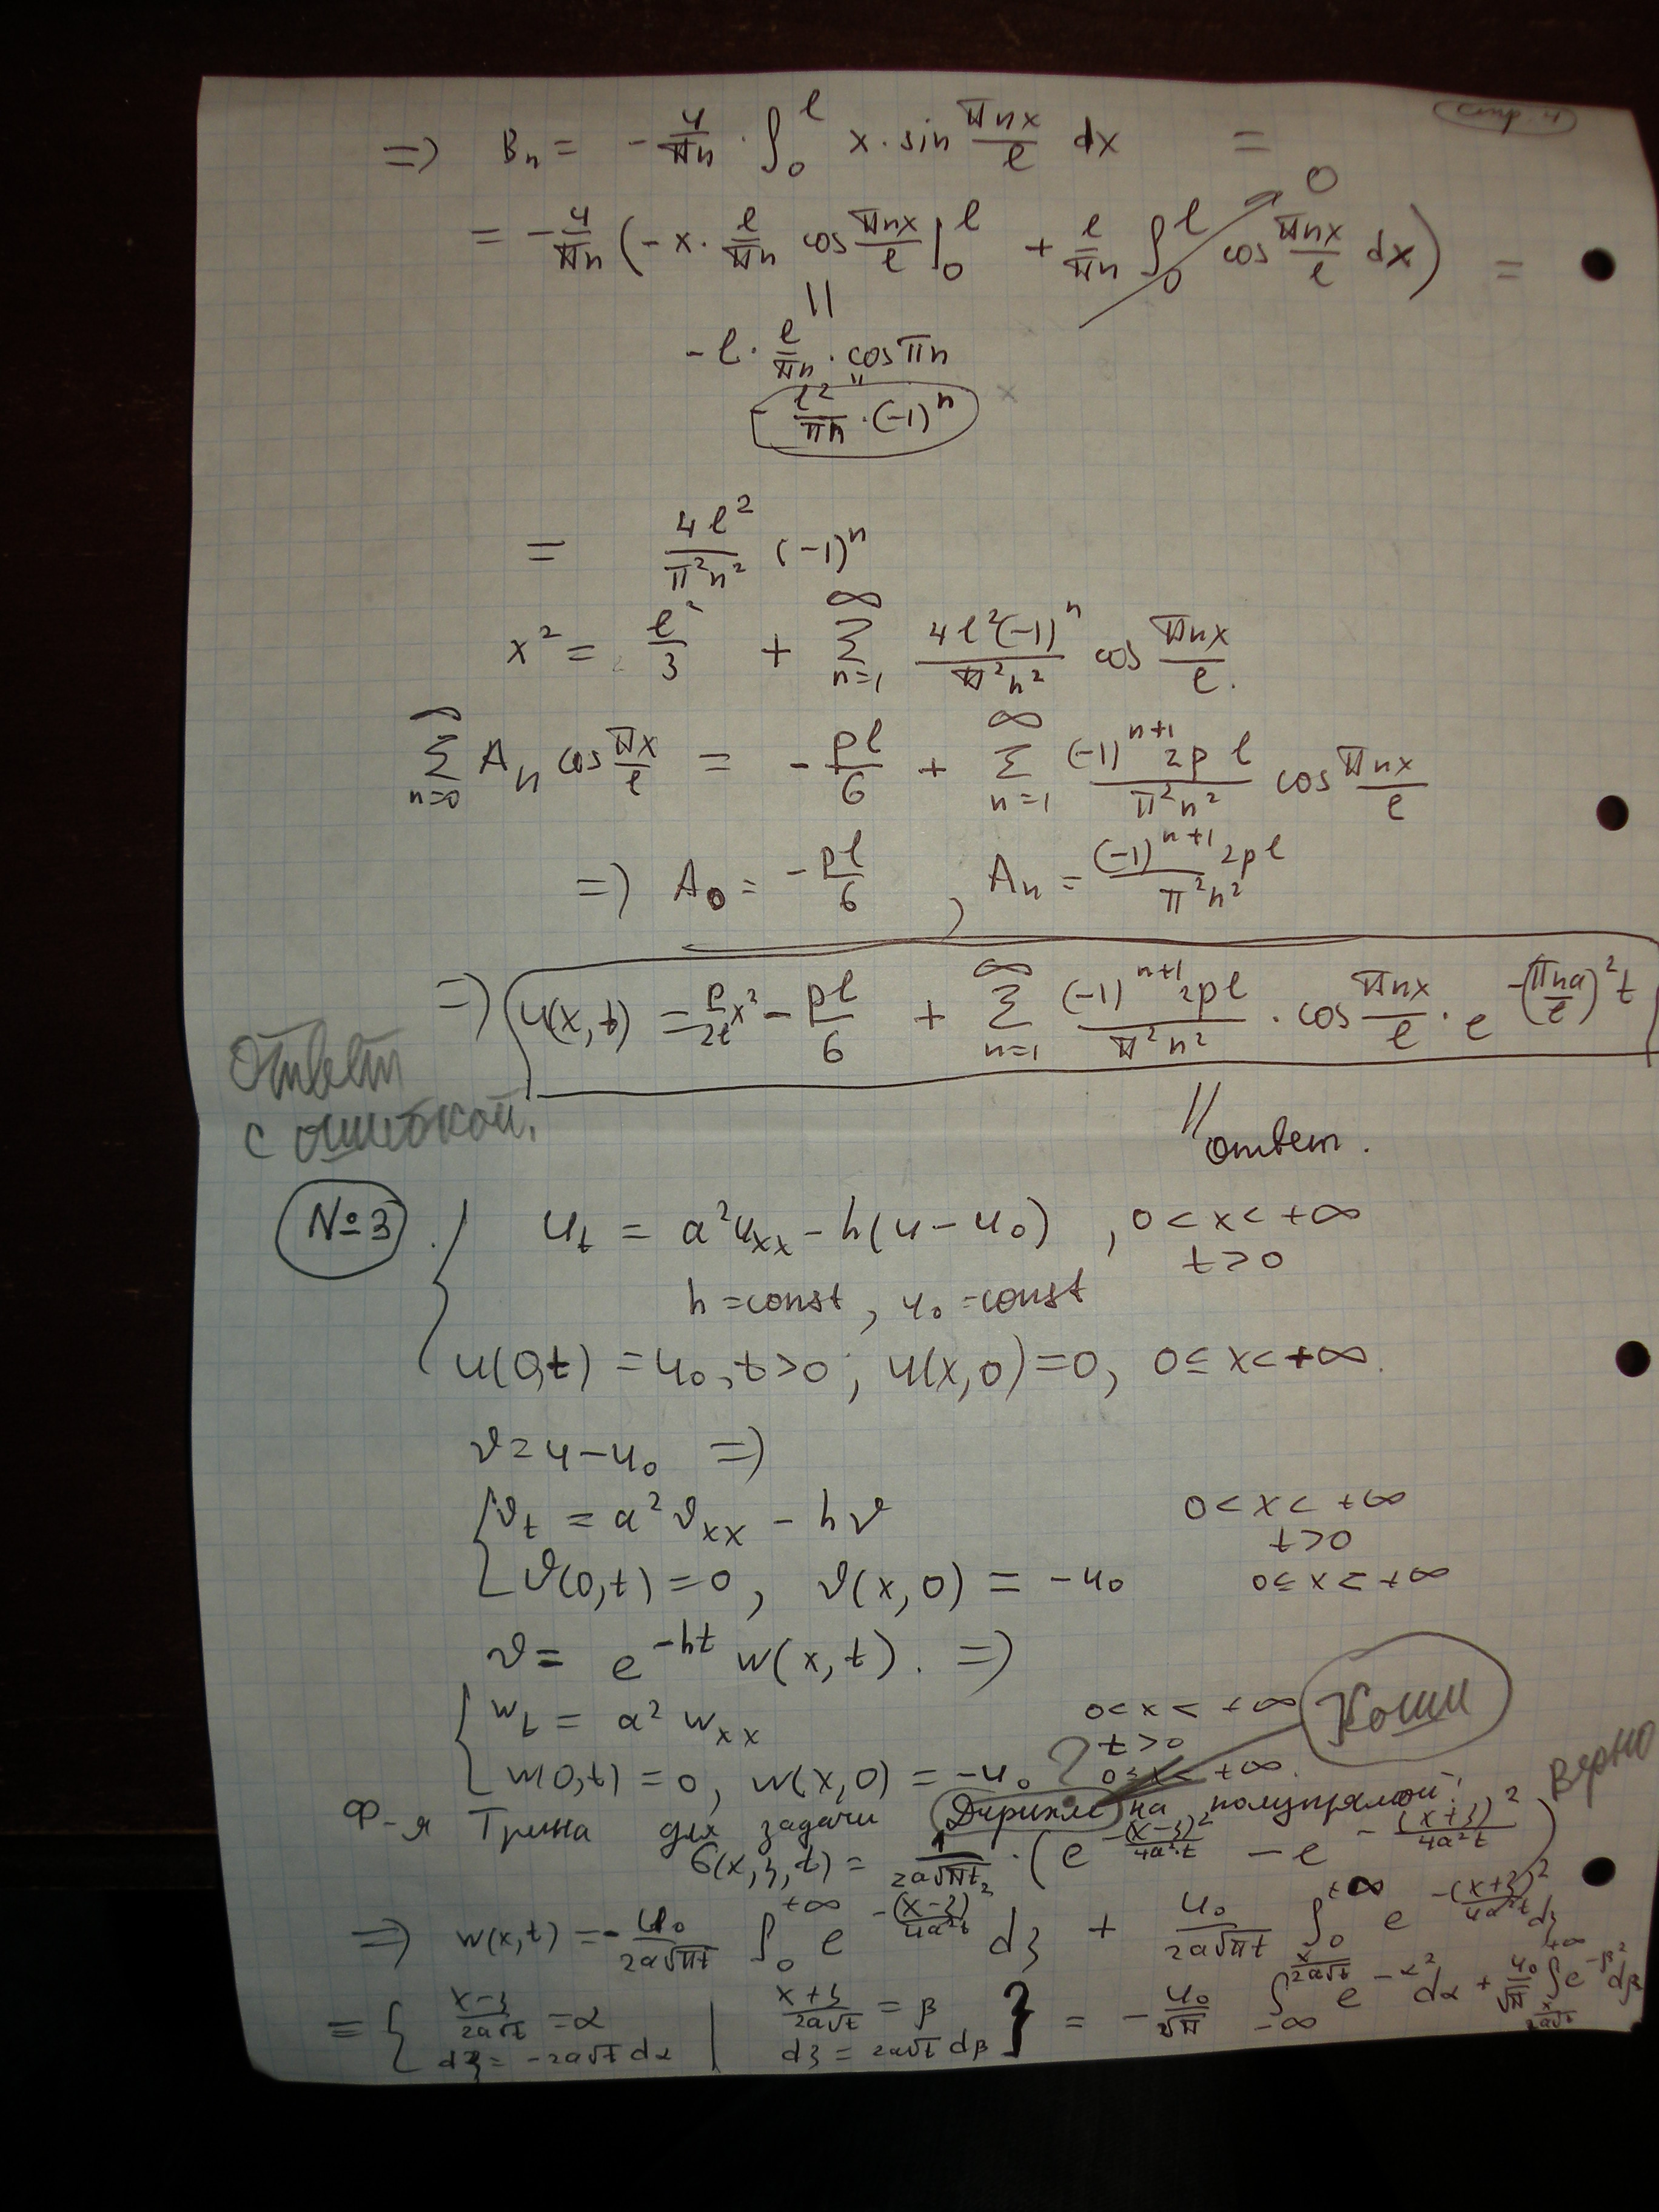 стр. 4
=> Bₙ = - 4/πn · ∫₀^ℓ x · sin πnx/ℓ dx =
= - 4/πn (- x · ℓ/πn cos πnx/ℓ |₀^ℓ + ℓ/πn ∫₀^ℓ cos πnx/ℓ dx) = 0
||
- ℓ · ℓ/πn · cos πn
"
- ℓ²/πn · (-1)ⁿ
= 4ℓ²/π²n² (-1)ⁿ
x² = ℓ²/3 + ∑_{n=1}^∞ 4ℓ²(-1)ⁿ/π²n² cos πnx/ℓ.
∑_{n=0}^∞ Aₙ cos πx/ℓ = - pℓ/6 + ∑_{n=1}^∞ (-1)^{n+1} 2pℓ/π²n² cos πnx/ℓ
=> A₀ = - pℓ/6 , Aₙ = (-1)^{n+1} 2pℓ/π²n²
=> u(x,t) = p/2ℓ x² - pℓ/6 + ∑_{n=1}^∞ (-1)^{n+1} 2pℓ/π²n² · cos πnx/ℓ · e^{-(πna/ℓ)² t}
Ответ
с ошибкой.
// ответ.
№3. { u_t = a² u_xx - h(u - u₀) , 0 < x < +∞
t > 0
h = const, u₀ = const
u(0,t) = u₀, t > 0; u(x,0) = 0, 0 ≤ x < +∞.
v = u - u₀ =>
{ v_t = a² v_xx - hv 0 < x < +∞
t > 0
v(0,t) = 0, v(x,0) = - u₀ 0 ≤ x < +∞
v = e^{-ht} w(x,t). =>
{ w_t = a² w_xx 0 < x < +∞
t > 0
Коши
w(0,t) = 0, w(x,0) = - u₀ ? 0 ≤ x < +∞.
Верно
Ф-я Грина для задачи Дирихле на полупрямой:
G(x,ξ,t) = 1/2a√πt · (e^{-(x-ξ)²/4a²t} - e^{-(x+ξ)²/4a²t})
=> w(x,t) = - u₀/2a√πt ∫₀^{+∞} e^{-(x-ξ)²/4a²t} dξ + u₀/2a√πt ∫₀^{+∞} e^{-(x+ξ)²/4a²t} dξ
= { x-ξ/2a√t = α | x+ξ/2a√t = β } = - u₀/√π ∫_{-∞}^{x/2a√t} e^{-α²} dα + u₀/√π ∫_{x/2a√t}^{+∞} e^{-β²} dβ
dξ = -2a√t dα | dξ = 2a√t dβ